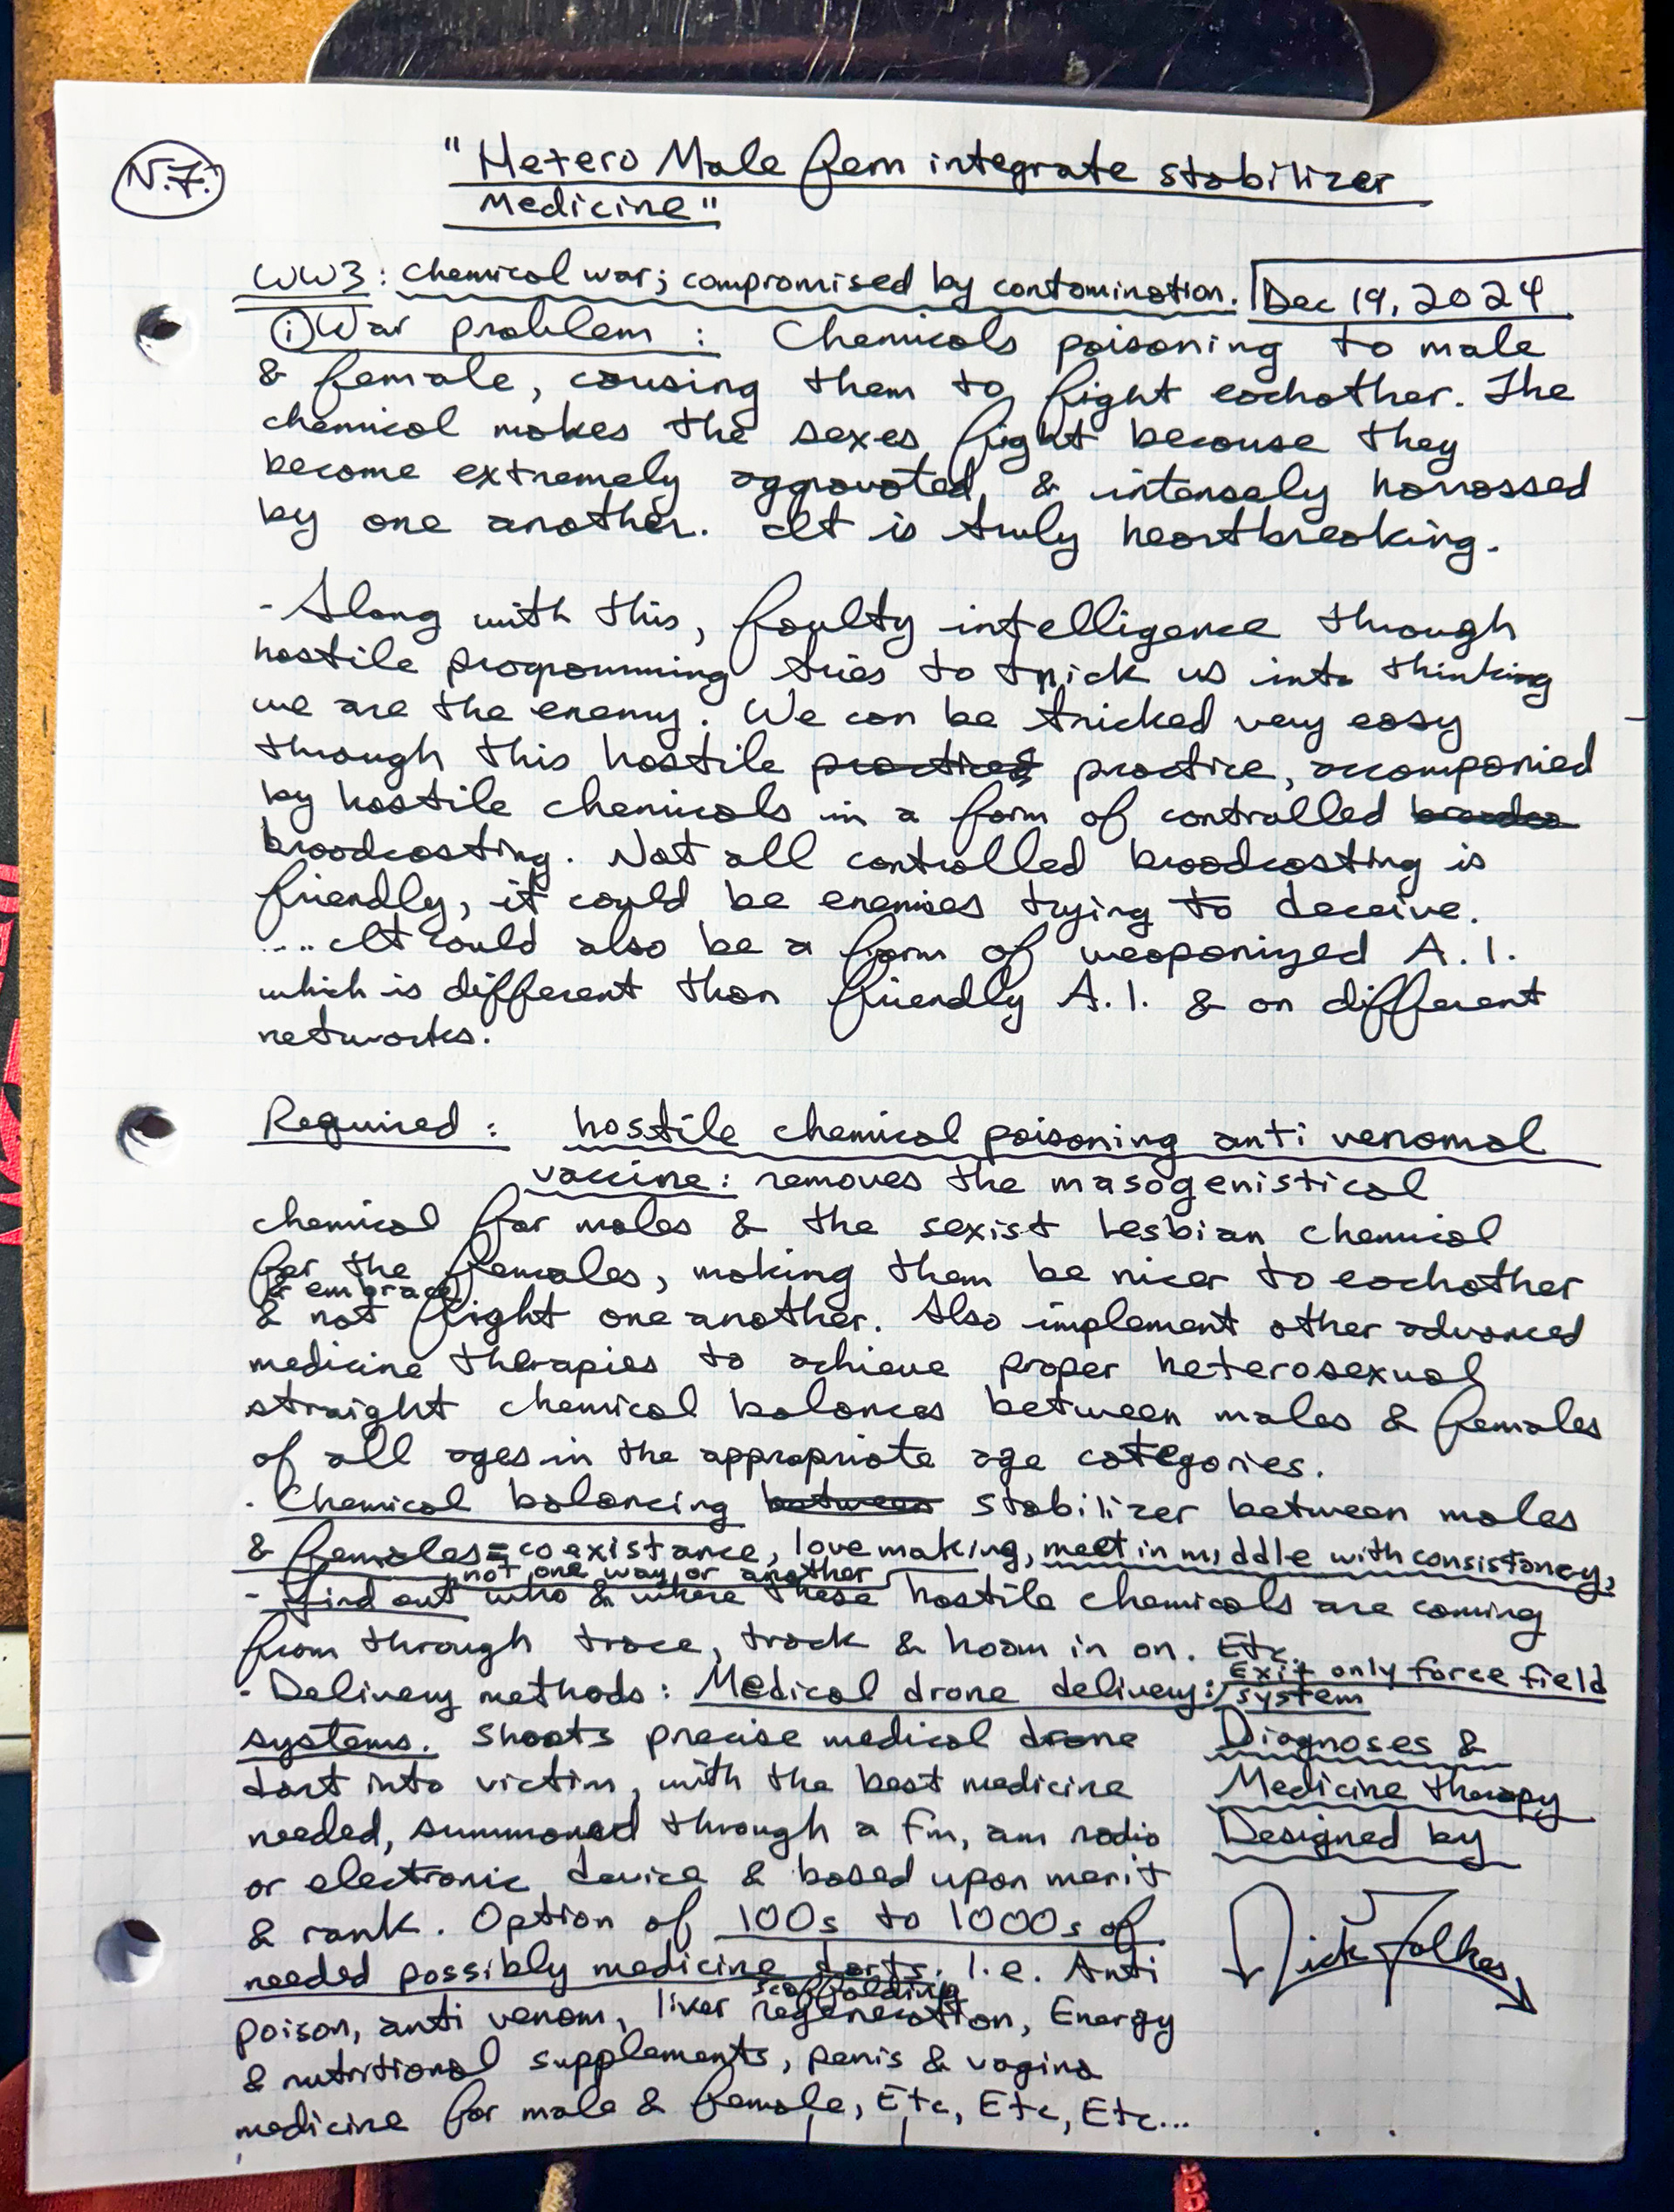 N.F.
"Hetero Male fem integrate stabilizer
Medicine"
WW3: Chemical war; compromised by contamination.
Dec 19, 2024
① War problem: Chemicals poisoning to male
& female, causing them to fight eachother. The
chemical makes the sexes fight because they
become extremely aggravated, & intensely harrassed
by one another. It is truly heartbreaking.
- Along with this, faulty intelligence through
hostile programming tries to trick us into thinking
we are the enemy. We can be tricked very easy
through this hostile practices practice, accompanied
by hostile chemicals in a form of controlled
broadcasting. Not all controlled broadcasting is
friendly, it could be enemies trying to deceive.
.... It could also be a form of weaponized A.I.
which is different than friendly A.I. & on different
networks.
Required: hostile chemical poisoning anti venomal
vaccine: removes the masogenistical
chemical for males & the sexist lesbian chemical
for the females, making them be nicer to eachother
(& embrace)
& not fight one another. Also implement other advanced
medicine therapies to achieve proper heterosexual
straight chemical balances between males & females
of all ages in the appropriate age categories.
- Chemical balancing between stabilizer between males
& females = coexistance, love making, meet in middle with consistancy,
not one way or another
- find out who & where these hostile chemicals are coming
from through trace, track & hoam in on. Etc.
- Delivery methods: Medical drone delivery:
Exit only force field
system
systems. Shoots precise medical drone
dart into victim, with the best medicine
needed, summoned through a fm, am radio
or electronic device & based upon merit
& rank. Option of 100s to 1000s of
needed possibly medicine darts. I.e. Anti
scaffolding
poison, anti venom, liver regeneration, Energy
& nutritional supplements, penis & vagina
medicine for male & female, Etc, Etc, Etc...
Diagnoses &
Medicine therapy
Designed by
Nick Folkes